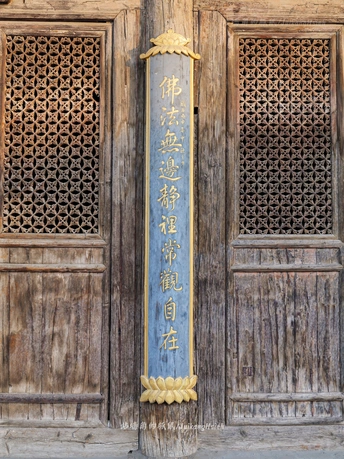 佛法無邊靜裡常觀自在